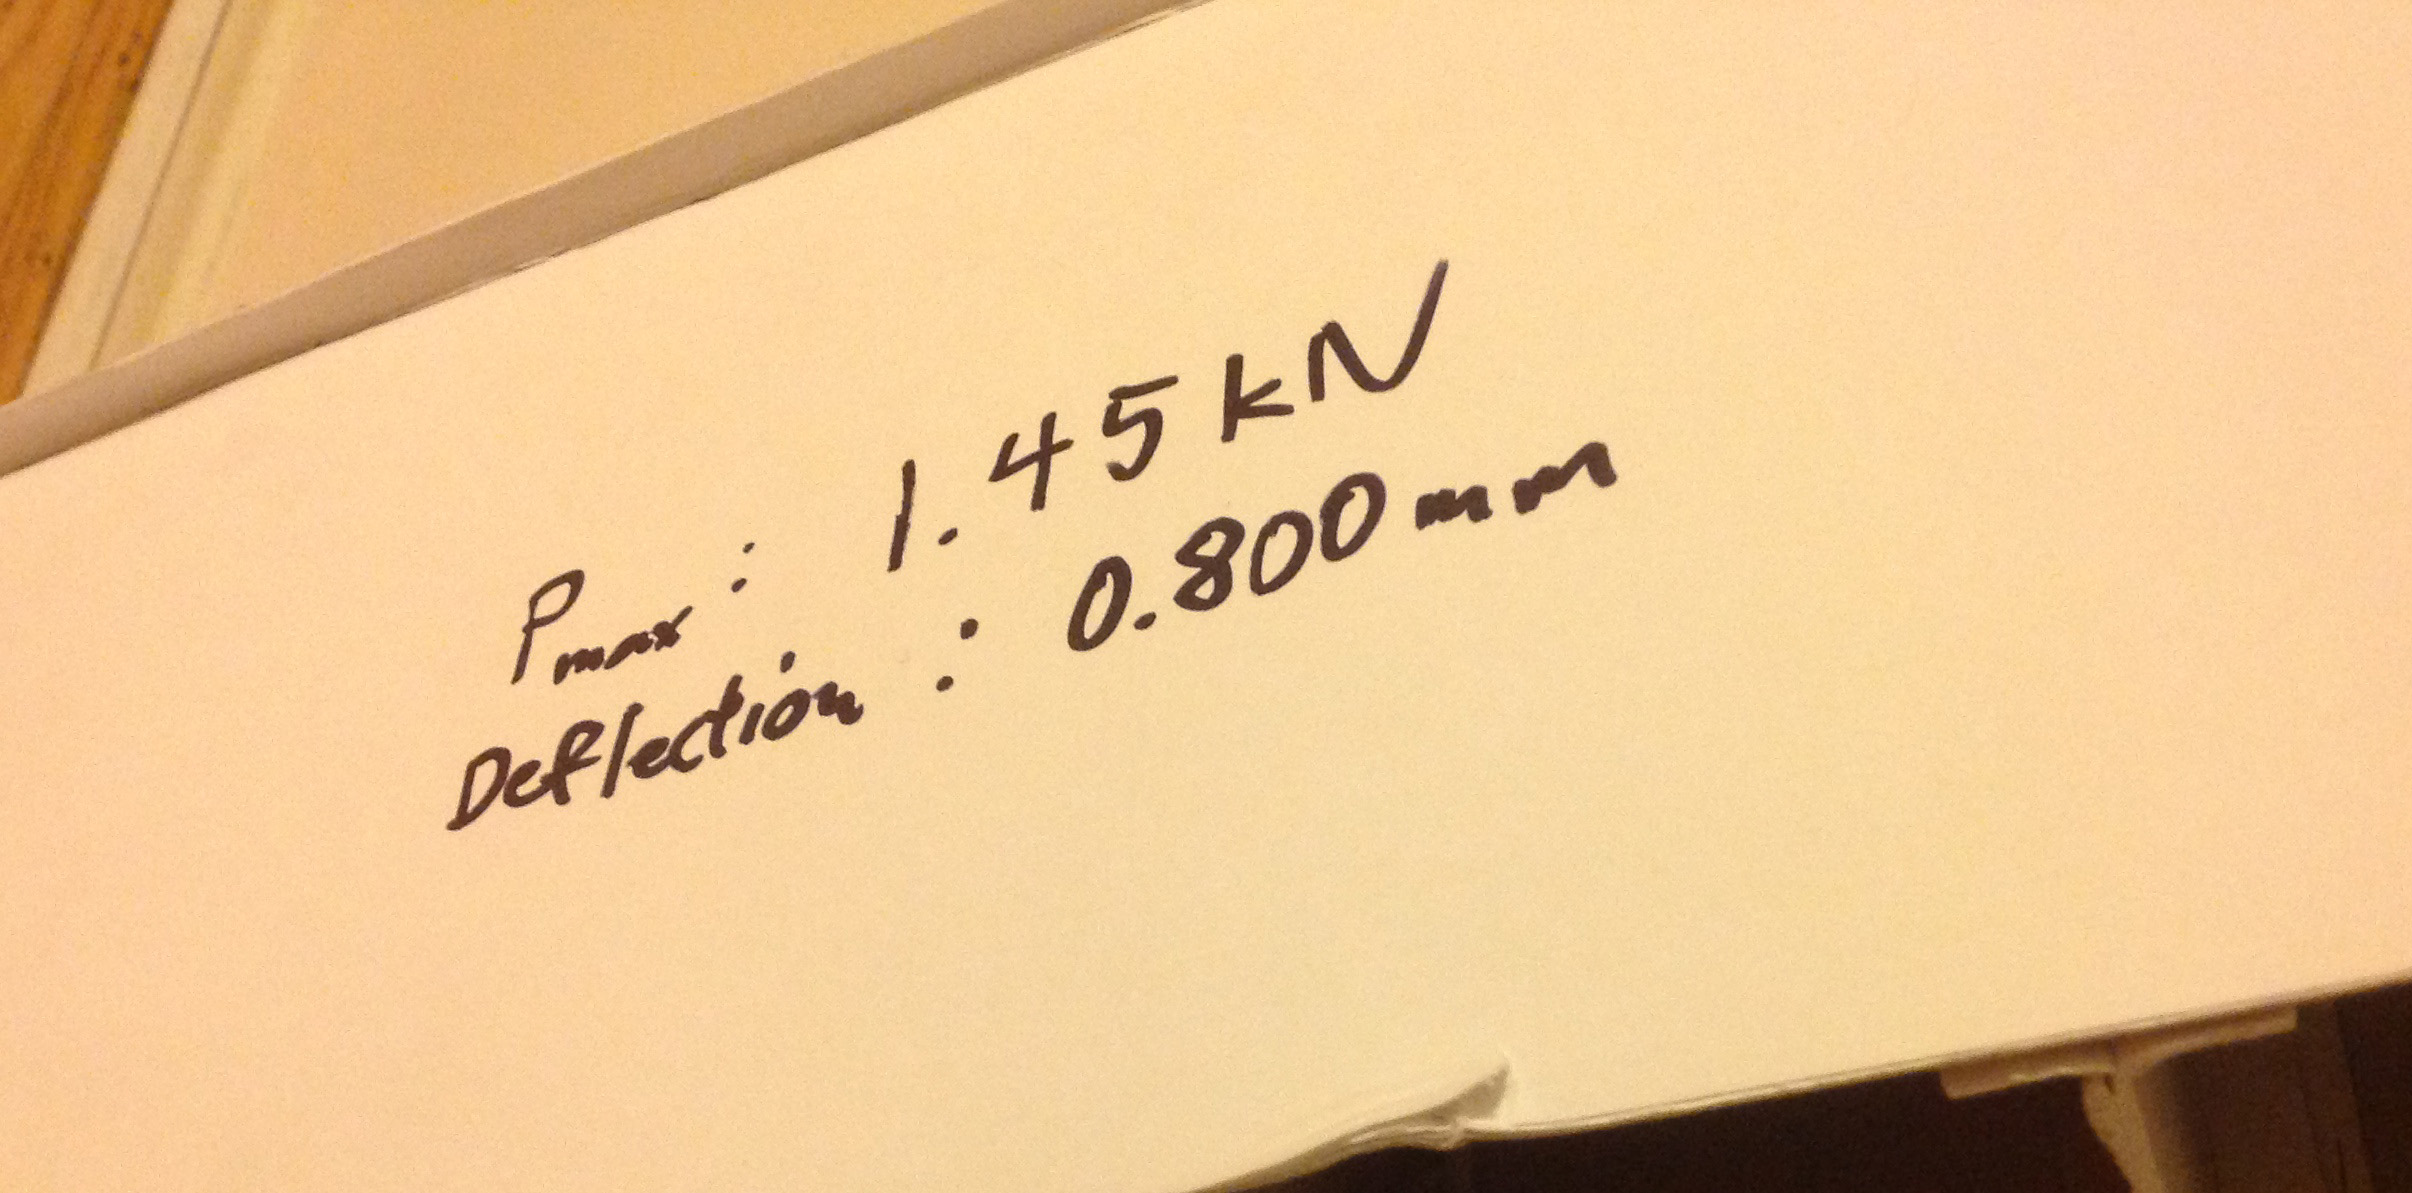 Pmax: 1.45 kN
Deflection: 0.800 mm